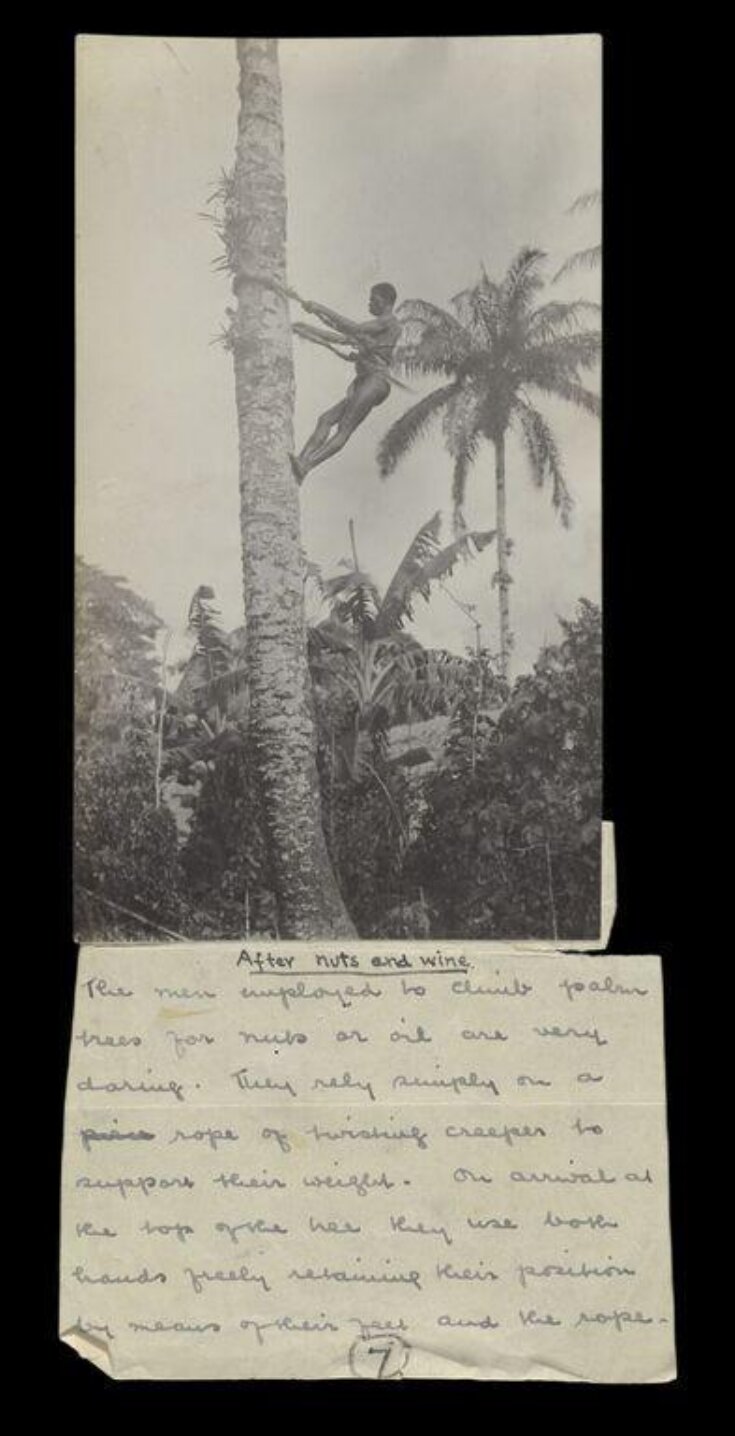 After nuts and wine.
The men employed to climb palm
trees for nuts or oil are very
daring. They rely simply on a
piece rope of twisting creeper to
support their weight. On arrival at
the top of the tree they use both
hands freely retaining their position
by means of their feet and the rope.
7